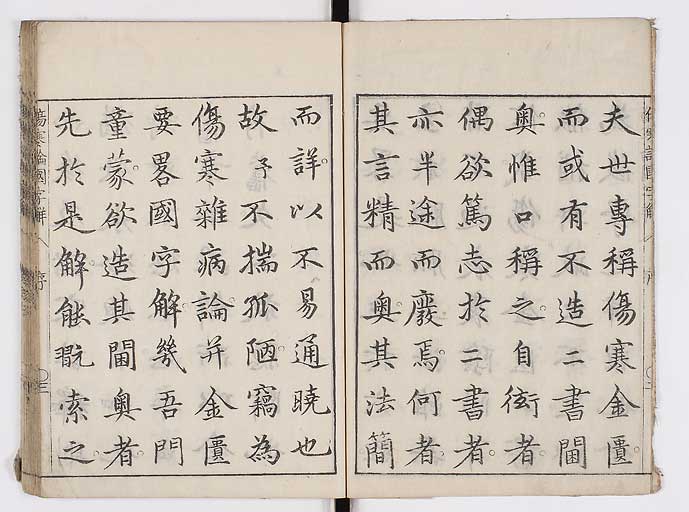 夫世專稱傷寒金匱
而或有不造二書閫
奧。惟口稱之。自衒者
偶欲篤志於二書者。
亦半途而廢焉。何者。
其言精而奧其法簡
而詳以不易通曉也
故予不揣孤陋。竊為
傷寒雜病論并金匱
要畧國字解。幾吾門
童蒙。欲造其閫奧者
先於是解能翫索之。
傷寒論國字解
序
〇三